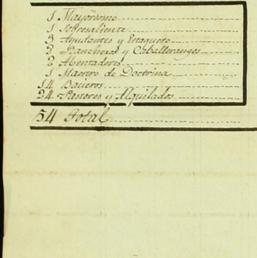 1 Mayordomo
1 Sobresaliente
3 Ayudantes y
3 Rancheros y Caballerangos
2 Aventadores
1 Maestro de Doctrina
14 Baqueros
34 Pastores y Alquilados
54 Total